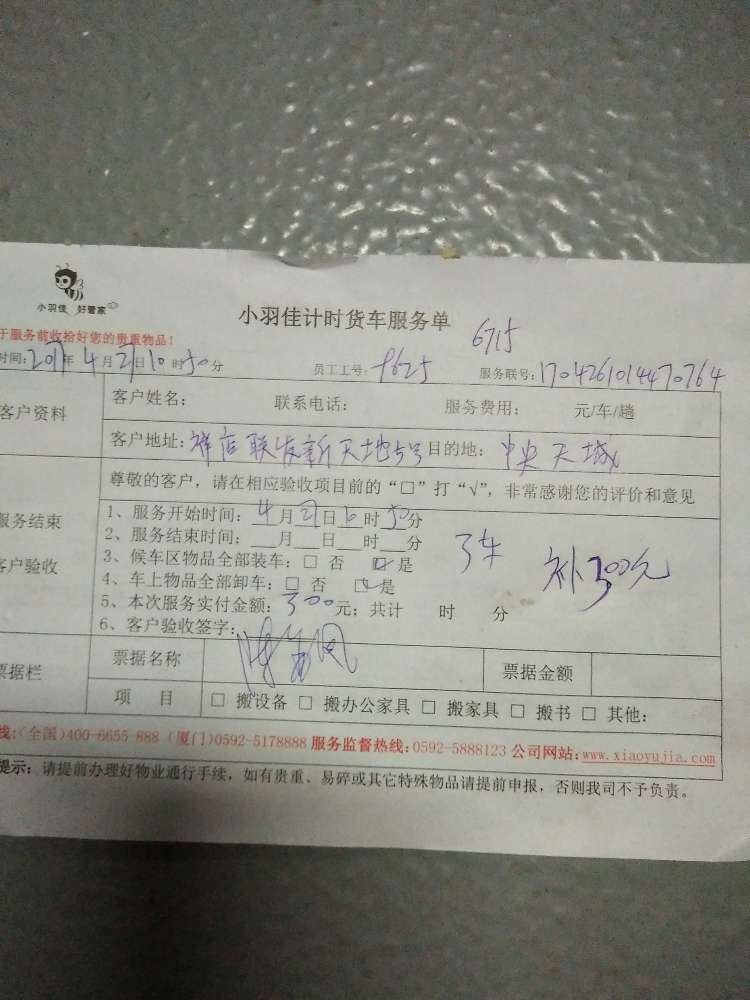 小羽佳 好管家
小羽佳计时货车服务单
6715
于服务前收拾好您的贵重物品!
时间:2017年4月21日10时50分 员工工号:9625 服务联号:1704261014470764
客户资料
客户姓名: 联系电话: 服务费用: 元/车/趟
客户地址:祥店联发新天地5号 目的地:中央天城
尊敬的客户,请在相应验收项目前的“□”打“√”,非常感谢您的评价和意见
服务结束
客户验收
1、服务开始时间:4月21日 时50分
2、服务结束时间:__月__日__时__分
3、候车区物品全部装车:□ 否 ☑是
3车 补300元
4、车上物品全部卸车:□ 否 ☑是
5、本次服务实付金额:300元;共计 时 分
6、客户验收签字:
票据栏
票据名称 票据金额
项 目 □ 搬设备 □ 搬办公家具 □ 搬家具 □ 搬书 □ 其他:
线:(全国)400-6655-888 (厦门)0592-5178888 服务监督热线:0592-5888123 公司网站:www.xiaoyujia.com
提示:请提前办理好物业通行手续,如有贵重、易碎或其它特殊物品请提前申报,否则我司不予负责。